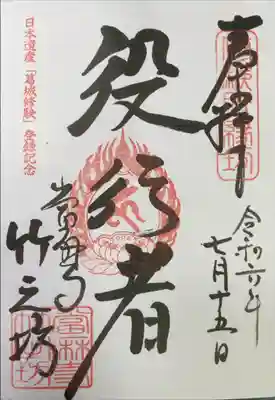 奉拝
令和六年
七月十五日
役行者
當麻寺
竹之坊
日本遺産「葛城修験」登録記念